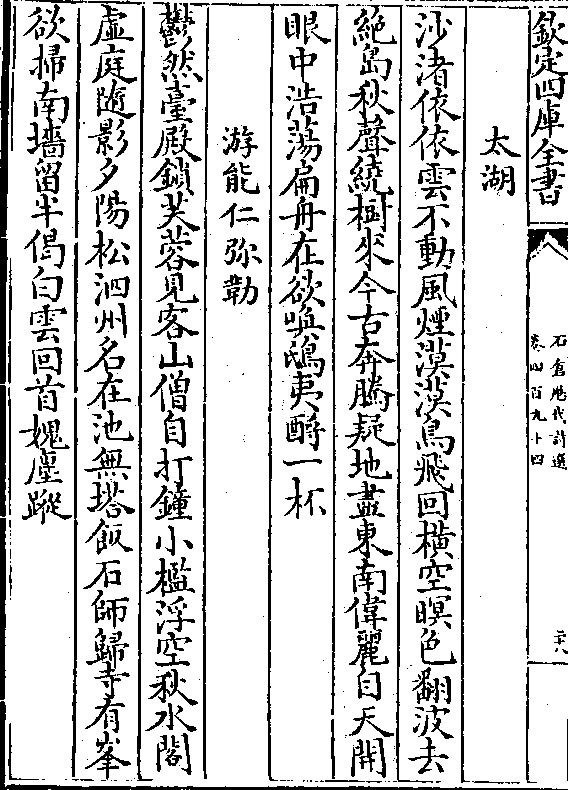 欽定四庫全書
石倉歷代詩選
卷四百九十四
二十八
太湖
沙渚依依雲不動風煙漠漠鳥飛回橫空暝色翻波去
絕島秋聲繞樹來今古奔騰疑地盡東南偉麗自天開
眼中浩蕩扁舟在欲喚鴟夷酹一杯
游能仁弥勒
鬱然臺殿鎖芙蓉見客山僧自打鐘小檻浮空秋水閣
虛庭隨影夕陽松泗州名在池無塔飯石師歸寺有峯
欲掃南墻留半偈白雲回首媿塵蹤